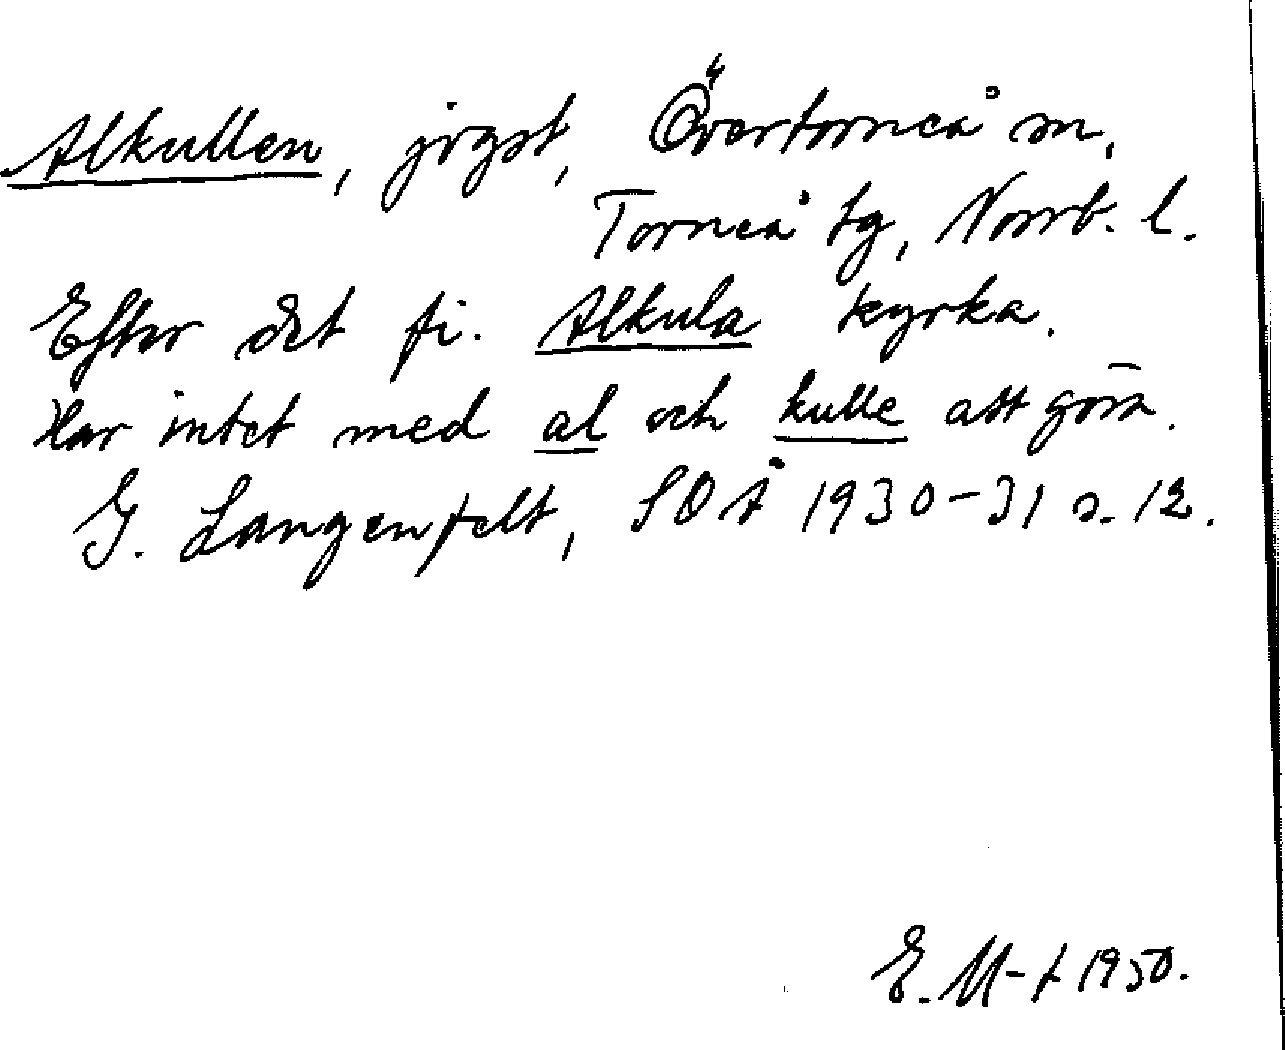 Alkullen, jvgst, Övertorneå sn,
Torneå tg, Norrb. l.
Efter det fi. Alkula kyrka.
Har intet med al och kulle att göra.
G. Langenfelt, SOÅ 1930-31 s. 12.
E. M-t 1950.